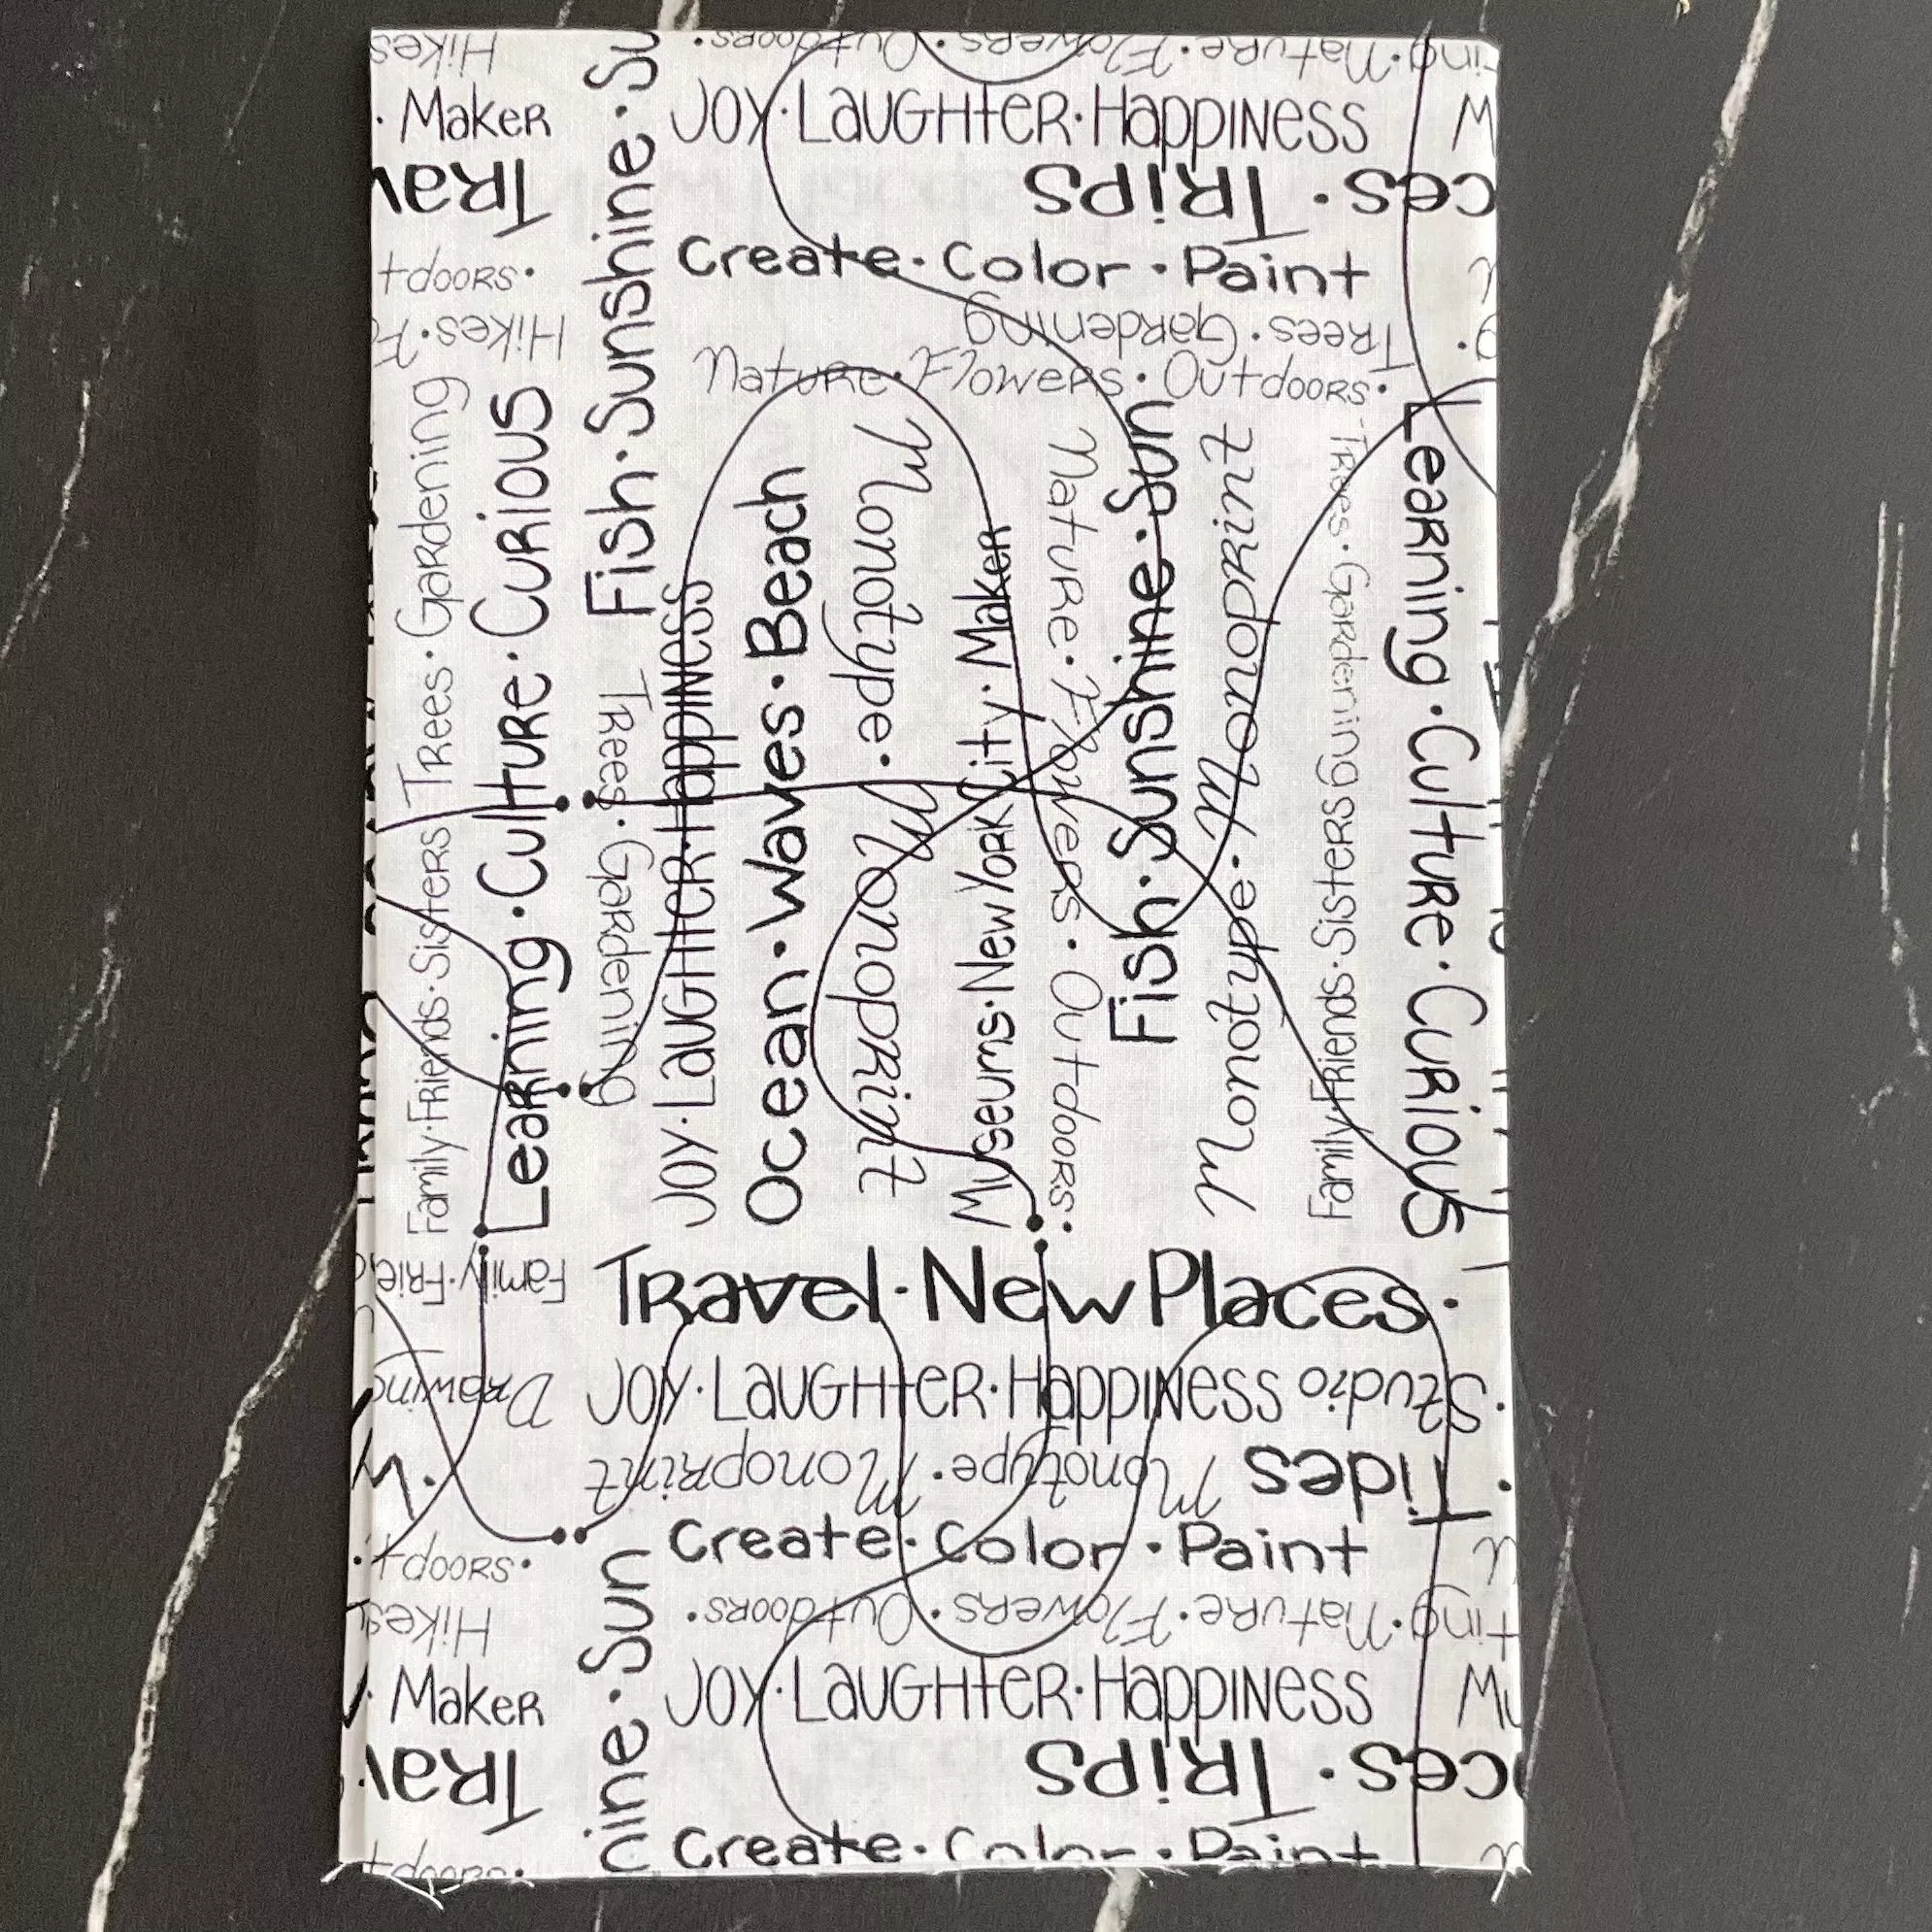 Hikes
ting·Nature·Flowers·Outdoors·
· Maker
Joy·Laughter·Happiness
Trav
ces·Trips
Create·Color·Paint
tdoors·
Hikes·F
Trees·Gardening
Nature·Flowers·Outdoors·
Fish·Sunshine·Su
Family·Friends·Sisters Trees·Gardening
Learning·Culture·Curious
Trees·Gardening
Joy·Laughter·Happiness
Ocean·Waves·Beach
Monotype·Monoprint
Museums·New York City·Maker
Nature·Flowers·Outdoors·
Fish·Sunshine·Sun
Monotype·Monoprint
Family·Friends·Sisters
Trees·Gardening
Learning·Culture·Curious
Family·Frie
Travel·New Places·
Drawing
Joy·Laughter·Happiness
Studio
Monotype·Monoprint
Tides
tdoors·
Create·Color·Paint
Hikes
ting·Nature·Flowers·Outdoors·
· Maker
Joy·Laughter·Happiness
Mu
Trav
ces·Trips
hine·Sun
Create·Color·Paint